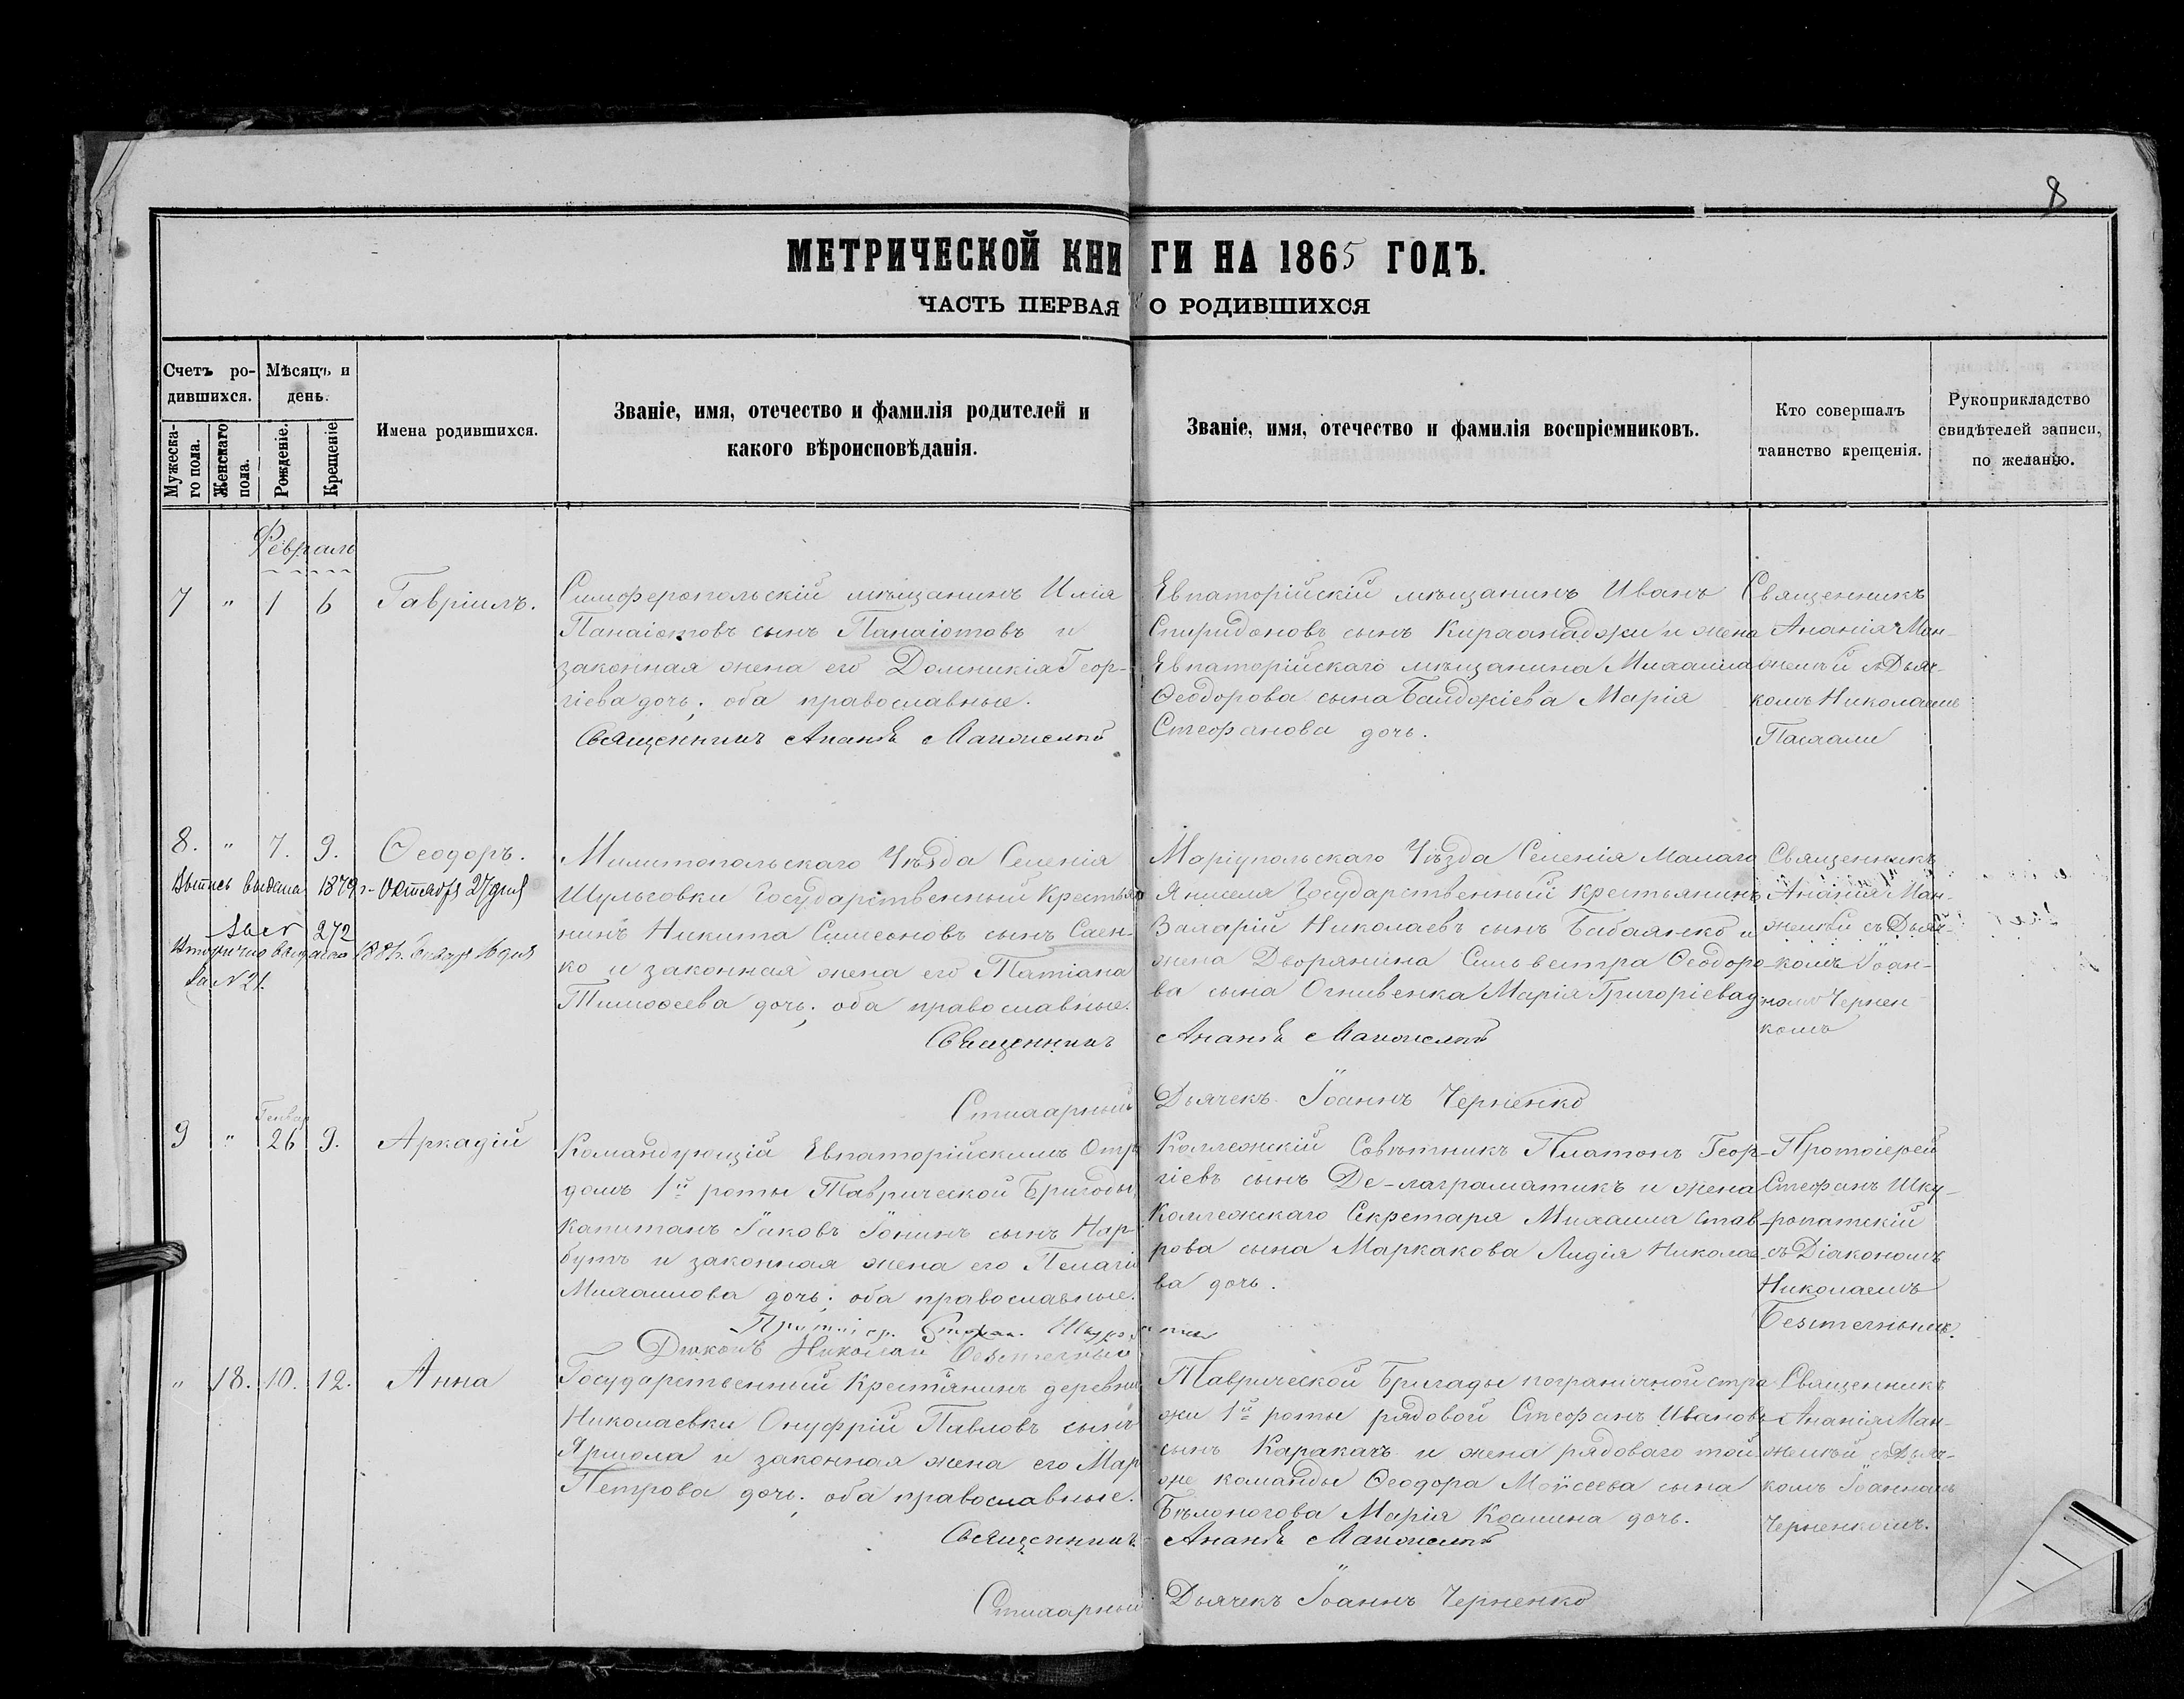 8
МЕТРИЧЕСКОЙ КНИГИ НА 1865 ГОДЪ.
ЧАСТЬ ПЕРВАЯ О РОДИВШИХСЯ
Счетъ ро-
дившихся.
Мужеска-
го пола.
Женскаго
пола.
Мѣсяцъ и
день.
Рожденіе.
Крещеніе
Имена родившихся.
Званіе, имя, отечество и фамилія родителей и
какого вѣроисповѣданія.
Званіе, имя, отечество и фамилія воспріемниковъ.
Кто совершалъ
таинство крещенія.
Рукоприкладство
свидѣтелей записи,
по желанію.
Февраль
7 " 1 6 Гавріилъ.
Симферопольскій мѣщанинъ Илія
Панаіотовъ сынъ Панаіотовъ и
законная жена его Домникія Геор-
гіева дочь; оба православные.
Священникъ Ананія
Евпаторійскій мѣщанинъ Иванъ
Спиридоновъ сынъ Кираанаджи и жена
Евпаторійскаго мѣщанина Михаила
Ѳеодорова сына Байджіева Марія
Стефанова дочь.
Священникъ
Ананія Ман-
желѣй съ Дьяч-
комъ Николаемъ
8. " 7. 9. Ѳеодоръ.
Выпись выдана 1879 г. Октября 27 дня
за № 272
Вторично выдана 16 дня
за № 21.
Милитопольскаго Уѣзда Селенія
Шульговки Государственный Крестья
нинъ Никита Симеоновъ сынъ Саен-
ко и законная жена его Татіана
Тимоѳеева дочь; оба православные.
Священникъ Ананія
Маріупольскаго Уѣзда Селенія Малаго
Янисаля Государственный крестьянинъ
Захарій Николаевъ сынъ Бабаянко и
жена Дворянина Сильвестра Ѳеодоро
ва сына Огнивенка Марія Григоріева д.
Священникъ
Ананія Ман-
желѣй съ Дьяч-
комъ Іоан-
номъ Чернен
комъ
Стихарный Дьячекъ Іоаннъ Черненко
Генвар
9 " 26 9. Аркадій
Командующій Евпаторійскимъ Отря
домъ 1й роты Таврической Бригады,
Капитанъ Іаковъ Іонинъ сынъ Нар-
бутъ и законная жена его Пелагія
Михаилова дочь; оба православные.
Діаконъ Николай Безтечный
Коллежскій Совѣтникъ Платонъ Геор-
гіевъ сынъ Де-лаграматикъ и жена
Коллежскаго Секретаря Михаила Став
рова сына Маркакова Лидія Никола
ва дочь.
Протоіерей
Стефанъ Шку-
ропатскій
съ Діакономъ
Николаемъ
" 18. 10. 12. Анна
Государственный Крестьянинъ деревни
Николаевки Онуфрій Павловъ сынъ
Ярмола и законная жена его Мар
Петрова дочь; оба православные.
Священникъ Ананія
Таврической Бригады пограничной стра
жи 1й роты рядовой Стефанъ Ивановъ
сынъ Каракачъ и жена рядоваго той
же команды Ѳеодора Моисеева сына
Бѣлоногова Марія Космина дочь.
Священникъ
Ананія Ман-
желѣй съ Дьяч-
комъ Іоанномъ
Черненкомъ.
Стихарный Дьячекъ Іоаннъ Черненко